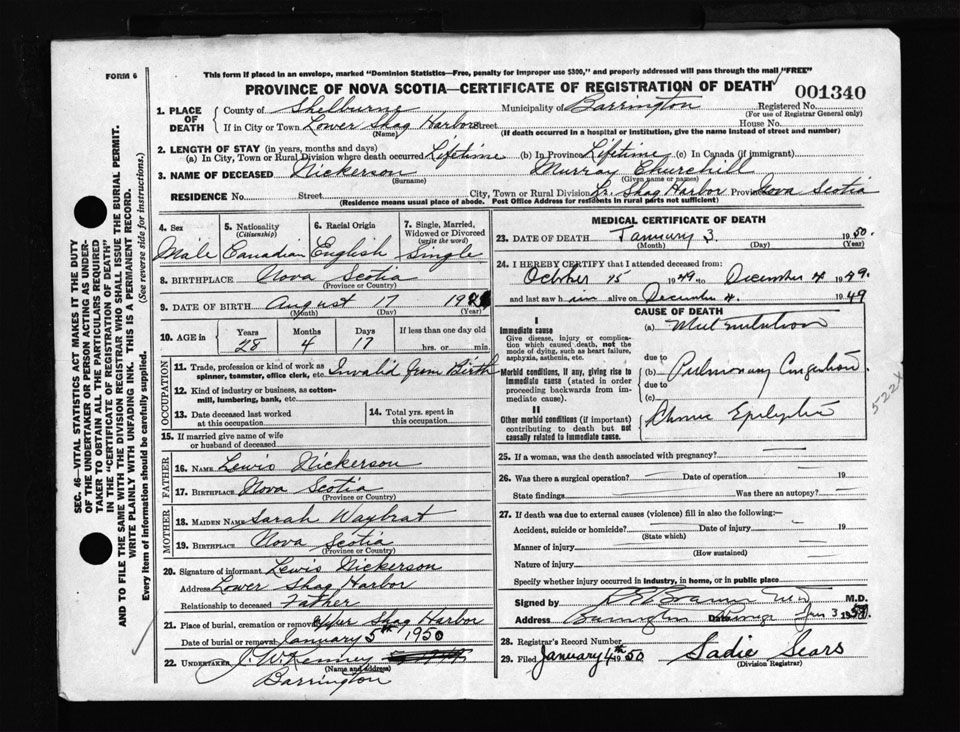 FORM 6
This form if placed in an envelope, marked "Dominion Statistics—Free, penalty for improper use $300," and properly addressed will pass through the mail "FREE"
PROVINCE OF NOVA SCOTIA—CERTIFICATE OF REGISTRATION OF DEATH
001340
1. PLACE OF DEATH County of Shelburne Municipality of Barrington Registered No.
(For use of Registrar General only)
If in City or Town Lower Shag Harbor Street House No.
(Name) (If death occurred in a hospital or institution, give the name instead of street and number)
2. LENGTH OF STAY (in years, months and days)
(a) In City, Town or Rural Division where death occurred Lifetime (b) In Province Lifetime (c) In Canada (if immigrant)
3. NAME OF DECEASED Nickerson Murray Churchill
(Surname) (Given name or names)
RESIDENCE No. Street City, Town or Rural Division Lr. Shag Harbor Province Nova Scotia
(Residence means usual place of abode. Post Office Address for residents in rural parts not sufficient)
SEC. 46—VITAL STATISTICS ACT MAKES IT THE DUTY
OF THE UNDERTAKER OR PERSON ACTING AS UNDER-
TAKER TO OBTAIN ALL THE PARTICULARS REQUIRED
IN THE "CERTIFICATE OF REGISTRATION OF DEATH"
AND TO FILE THE SAME WITH THE DIVISION REGISTRAR WHO SHALL ISSUE THE BURIAL PERMIT.
WRITE PLAINLY WITH UNFADING INK. THIS IS A PERMANENT RECORD.
Every item of information should be carefully supplied. (See reverse side for instructions.)
4. Sex 5. Nationality (Citizenship) 6. Racial Origin 7. Single, Married, Widowed or Divorced (write the word)
Male Canadian English Single
8. BIRTHPLACE Nova Scotia
(Province or Country)
9. DATE OF BIRTH August 17 19
(Month) (Day) (Year)
10. AGE in Years Months Days If less than one day old
28 4 17 hrs. or min.
OCCUPATION
11. Trade, profession or kind of work as spinner, teamster, office clerk, etc. Invalid from Birth
12. Kind of industry or business, as cotton-mill, lumbering, bank, etc.
13. Date deceased last worked at this occupation
14. Total yrs. spent in this occupation
15. If married give name of wife or husband of deceased
FATHER
16. NAME Lewis Nickerson
17. BIRTHPLACE Nova Scotia
(Province or Country)
MOTHER
18. MAIDEN NAME Sarah Waybrat
19. BIRTHPLACE Nova Scotia
(Province or Country)
20. Signature of informant Lewis Nickerson
Address Lower Shag Harbor
Relationship to deceased Father
21. Place of burial, cremation or removal Upper Shag Harbor
Date of burial or removal January 5th 1950
22. UNDERTAKER J. W. Kenney
(Name and address)
Barrington
MEDICAL CERTIFICATE OF DEATH
23. DATE OF DEATH January 3 1950
(Month) (Day) (Year)
24. I HEREBY CERTIFY that I attended deceased from:
October 15 1949 to December 4 1949
and last saw him alive on December 4. 1949
CAUSE OF DEATH
I
Immediate cause (a)
Give disease, injury or complication which caused death, not the mode of dying, such as heart failure, asphyxia, asthenia, etc.
due to
Morbid conditions, if any, giving rise to immediate cause (stated in order proceeding backwards from immediate cause). (b) Pulmonary Congestion
due to
(c)
II
Other morbid conditions (if important) contributing to death but not causally related to immediate cause.
25. If a woman, was the death associated with pregnancy?
26. Was there a surgical operation? Date of operation 19
State findings Was there an autopsy?
27. If death was due to external causes (violence) fill in also the following:—
Accident, suicide or homicide? Date of injury 19
(State which)
Manner of injury
(How sustained)
Nature of injury
Specify whether injury occurred in industry, in home, or in public place
Signed by M.D.
Address Date Jan 3 1950
28. Registrar's Record Number
29. Filed January 4th 1950 Sadie Sears
(Division Registrar)